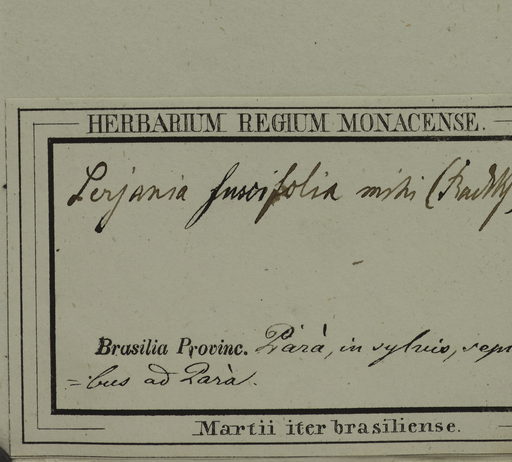 HERBARIUM REGIUM MONACENSE.
Serjania fuscifolia mihi (Radlk
Brasilia Provinc. Parà, in sylvis, sepi
=bus ad Parà.
Martii iter brasiliense.